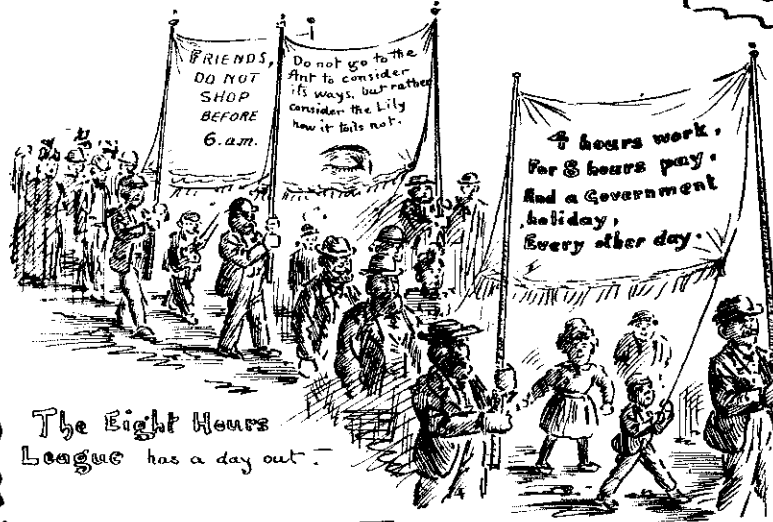 FRIENDS,
DO NOT
SHOP
BEFORE
6.a.m.
Do not go to the
Ant to consider
its ways, but rather
consider the Lily
how it toils not.
4 hours work,
For 8 hours pay.
And a Government
holiday,
Every other day.
The Eight Hours
League has a day out.